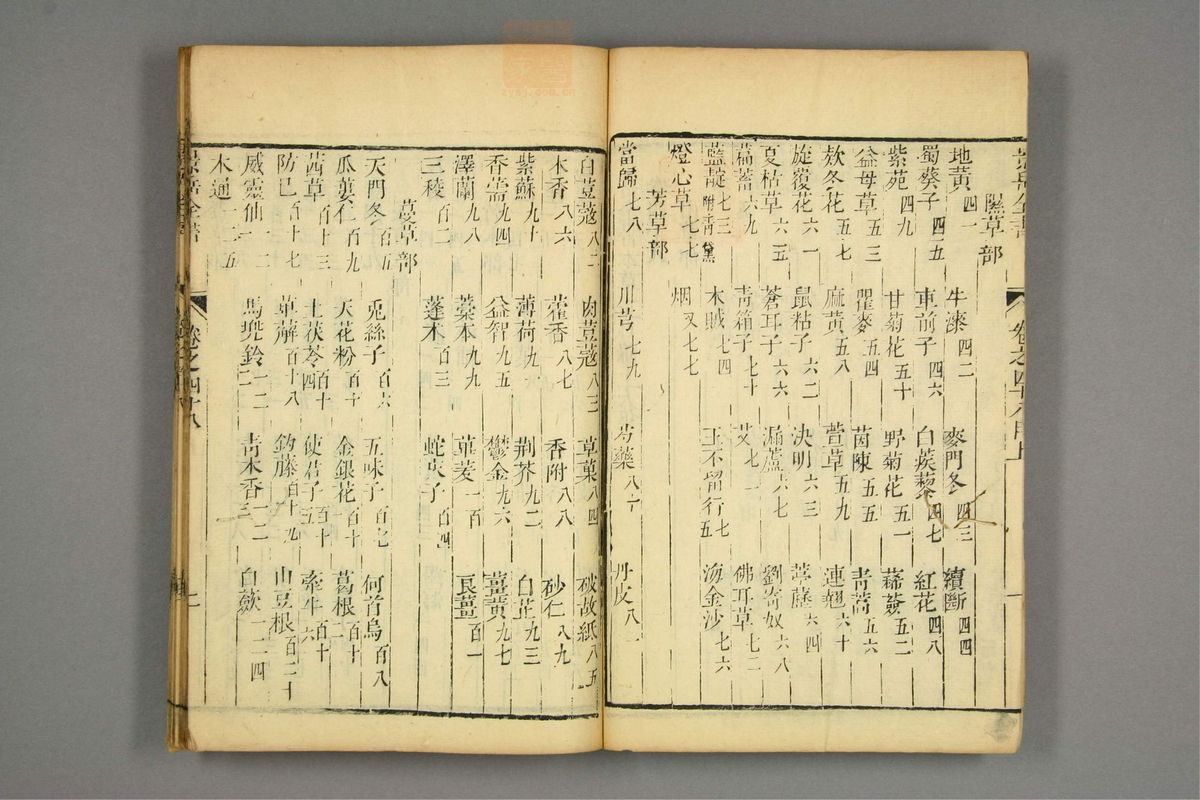 隰草部
地黃四一 牛漆四二 麥門冬四三 續斷四四
蜀葵子四五 車前子四六 白蒺藜四七 紅花四八
紫菀四九 甘菊花五十 野菊花五一 豨薟五二
益母草五三 瞿麥五四 茵陳五五 靑蒿五六
欸冬花五七 麻黃五八 萱草五九 連翹六十
旋覆花六一 鼠粘子六二 決明六三 葶藶六四
夏枯草六五 蒼耳子六六 漏蘆六七 劉寄奴六八
萹蓄六九 靑箱子七十 艾七一 佛耳草七二
藍靛七三附靑黛 木賊七四 王不留行七五 海金沙七六
燈心草七七 烟又七七
芳草部
當歸七八 川芎七九 芍藥八十 丹皮八一
白荳蔻八二 肉荳蔻八三 草菓八四 破故紙八五
木香八六 藿香八七 香附八八 砂仁八九
紫蘇九十 薄荷九一 荆芥九二 白芷九三
香薷九四 益智九五 鬱金九六 薑黃九七
澤蘭九八 藁本九九 蓽茇一百 良薑百一
三稜百二 蓬朮百三 蛇床子百四
蔓草部
天門冬百五 兎絲子百六 五味子百七 何首烏百八
瓜蔞仁百九 天花粉百十 金銀花百十一 葛根百十二
茜草百十三 土茯苓百十四 使君子百十五 牽牛百十六
防己百十七 萆薢百十八 鈎藤百十九 山豆根百二十
威靈仙一二一 馬兜鈴一二二 靑木香一二三 白蘞一二四
木通一二五
卷之四十八